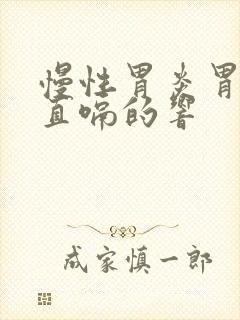 慢性胃炎胃
直喘的響
成家慎一郎